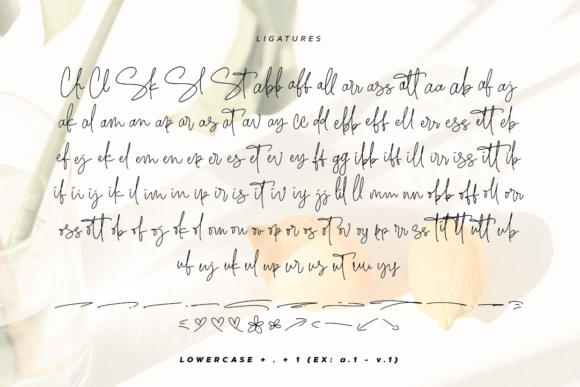 LIGATURES
Ch Cl Sk Sl St abb aff all arr ass att aa ab af aj
ak al am an ap ar as at av ay cc dd ebb eff ell err ess ett eb
ef ej ek el em en ep er es et ev ey ff gg ibb iff ill irr iss itt ib
if ii ij ik il im in ip ir is it iv iy jj ld ll mm nn obb off oll orr
oss ott ob of oj ok ol om on oo op or os ot ov oy pp rr ss tit tl tt utt ub
uf uj uk ul up ur us ut uu yy
LOWERCASE + . + 1 (EX: a.1 - v.1)